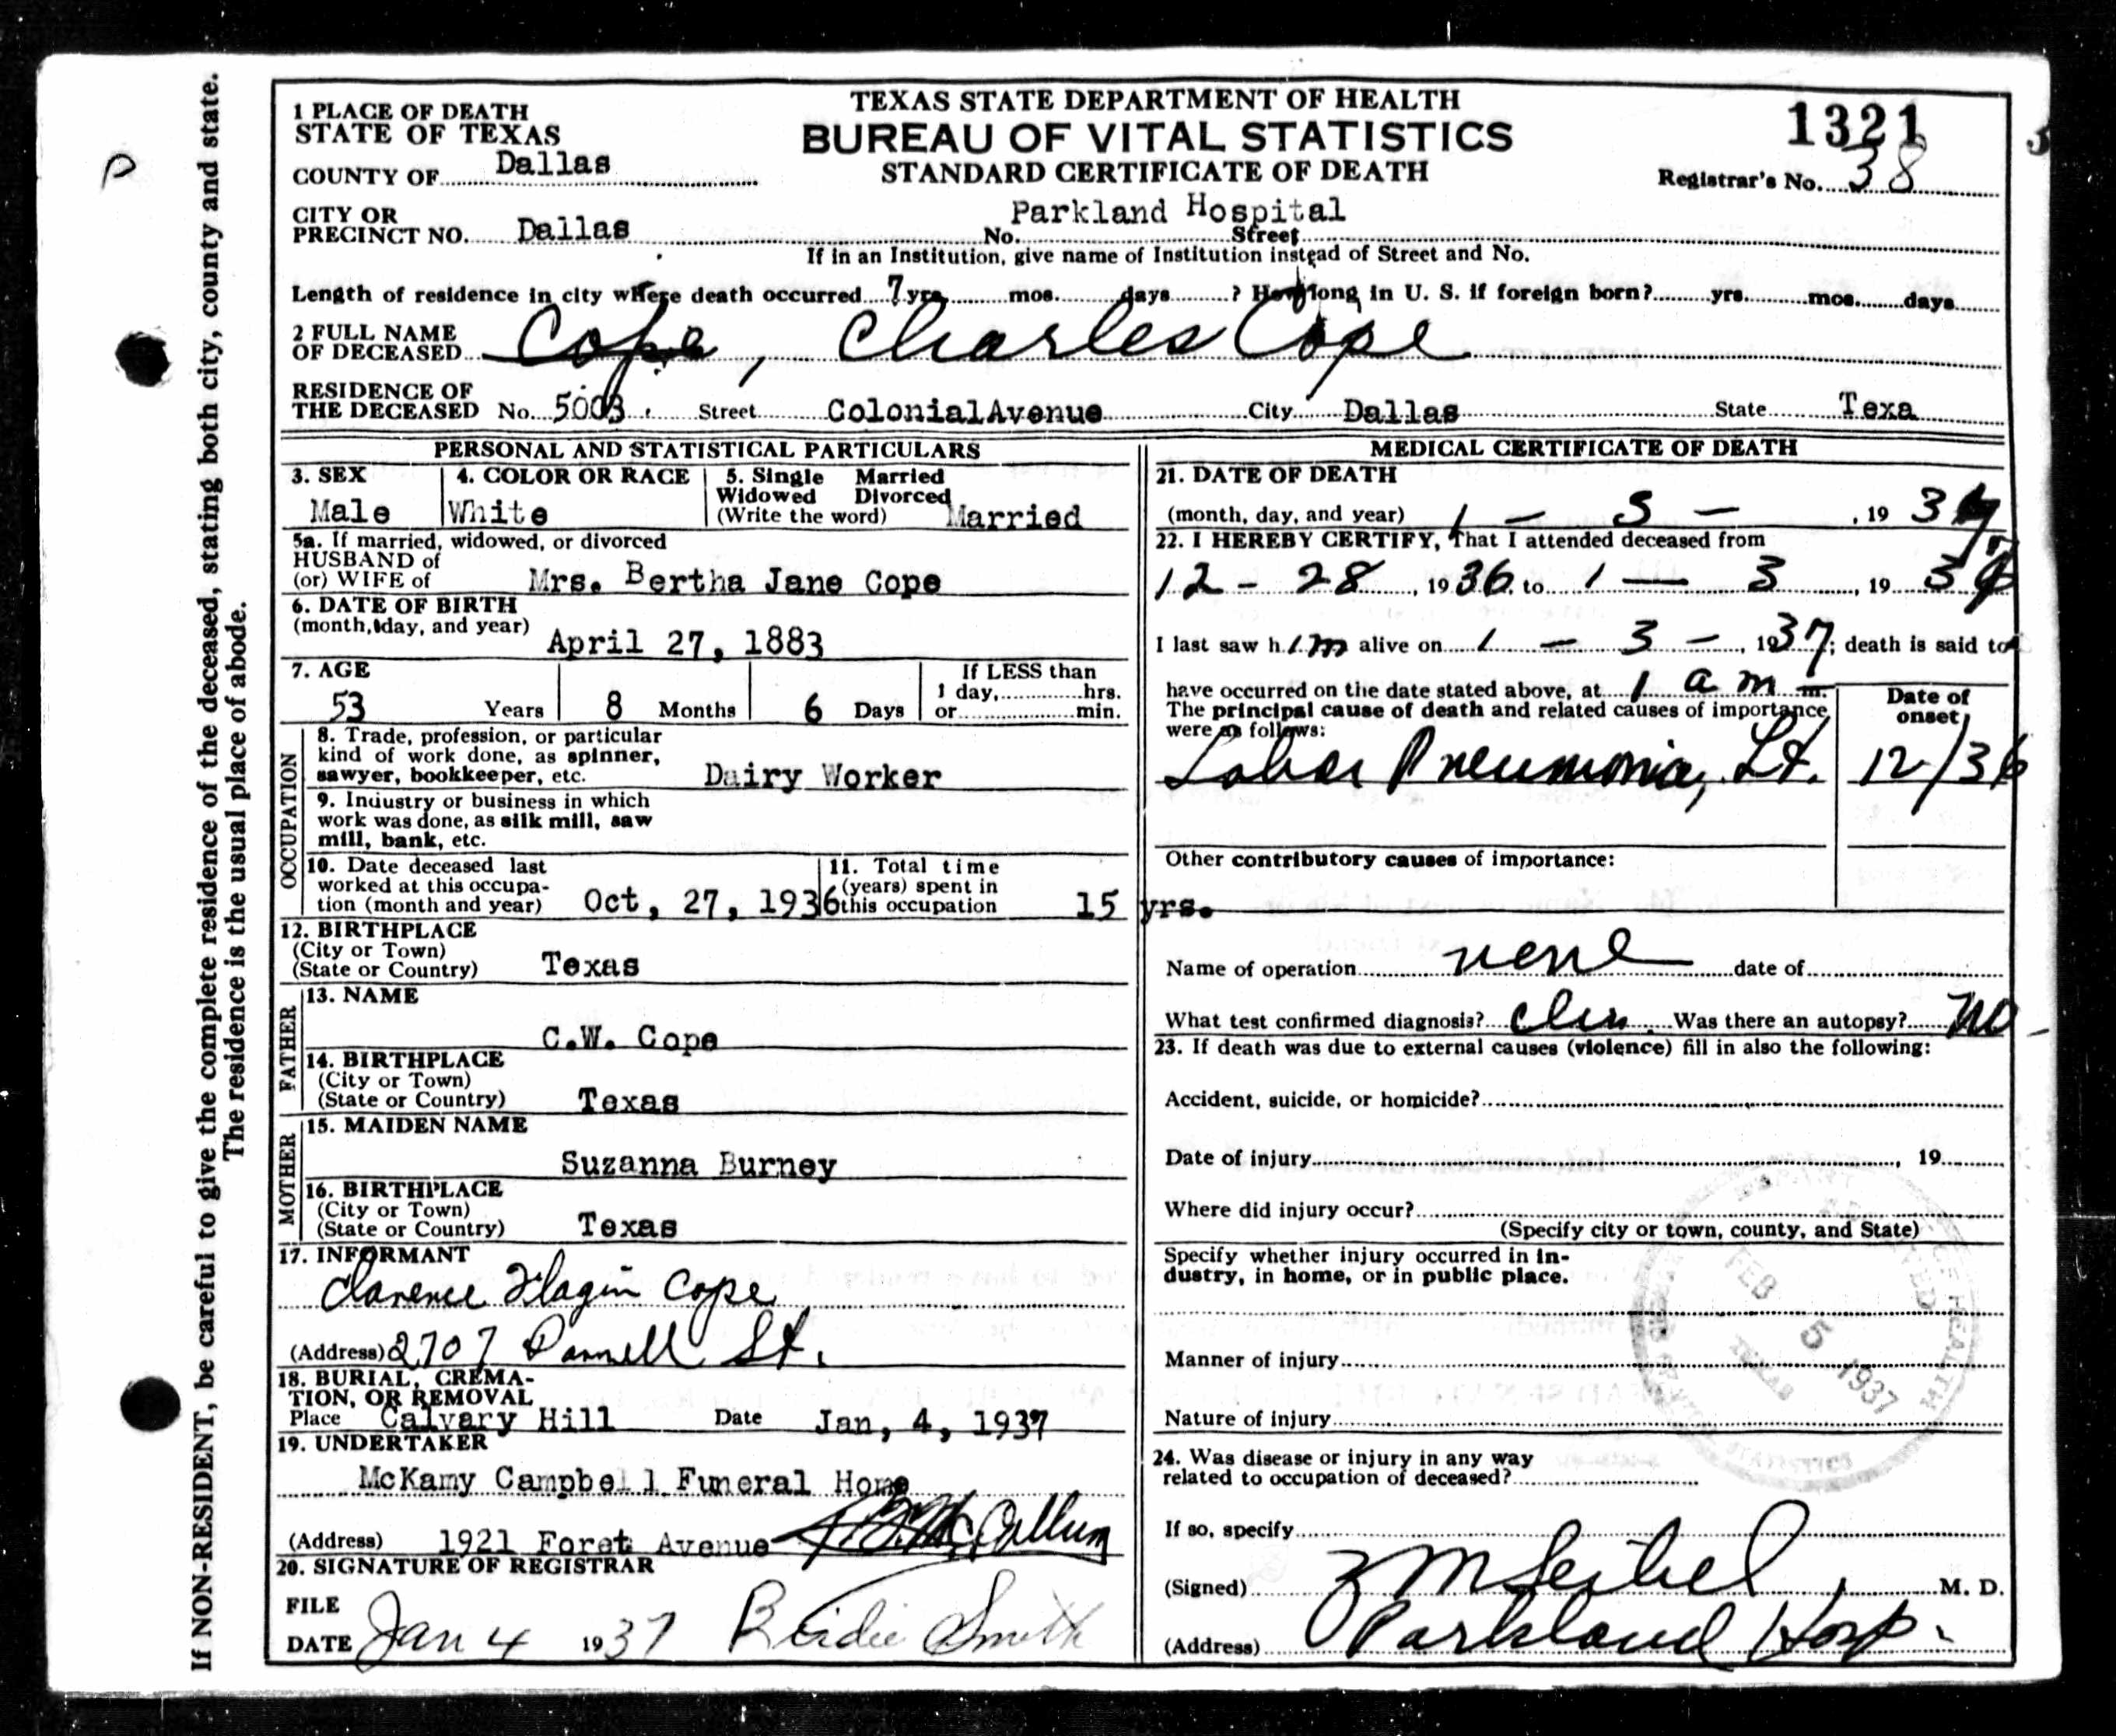 If NON-RESIDENT, be careful to give the complete residence of the deceased, stating both city, county and state.
The residence is the usual place of abode.
P
1 PLACE OF DEATH
STATE OF TEXAS
COUNTY OF Dallas
CITY OR
PRECINCT NO. Dallas
TEXAS STATE DEPARTMENT OF HEALTH
BUREAU OF VITAL STATISTICS
STANDARD CERTIFICATE OF DEATH
1321
Registrar's No. 38
Parkland Hospital
No. Street
If in an Institution, give name of Institution instead of Street and No.
Length of residence in city where death occurred 7 yrs. mos. days ? How long in U. S. if foreign born? yrs. mos. days
2 FULL NAME
OF DECEASED Cope, Charles Cope
RESIDENCE OF
THE DECEASED No. 5003 Street Colonial Avenue City Dallas State Texa
PERSONAL AND STATISTICAL PARTICULARS
3. SEX
Male
4. COLOR OR RACE
White
5. Single Married
Widowed Divorced
(Write the word) Married
5a. If married, widowed, or divorced
HUSBAND of
(or) WIFE of Mrs. Bertha Jane Cope
6. DATE OF BIRTH
(month, day, and year) April 27, 1883
7. AGE
53 Years 8 Months 6 Days
If LESS than
1 day, hrs.
or min.
OCCUPATION
8. Trade, profession, or particular
kind of work done, as spinner,
sawyer, bookkeeper, etc. Dairy Worker
9. Industry or business in which
work was done, as silk mill, saw
mill, bank, etc.
10. Date deceased last
worked at this occupa-
tion (month and year) Oct, 27, 1936
11. Total time
(years) spent in
this occupation 15 yrs.
12. BIRTHPLACE
(City or Town)
(State or Country) Texas
FATHER
13. NAME
C.W. Cope
14. BIRTHPLACE
(City or Town)
(State or Country) Texas
MOTHER
15. MAIDEN NAME
Suzanna Burney
16. BIRTHPLACE
(City or Town)
(State or Country) Texas
17. INFORMANT
Clarence Cope
(Address) 2707 Parnell St.
18. BURIAL, CREMA-
TION, OR REMOVAL
Place Calvary Hill Date Jan, 4, 1937
19. UNDERTAKER
McKamy Campbell Funeral Home
(Address) 1921 Foret Avenue McCollum
20. SIGNATURE OF REGISTRAR
FILE
DATE Jan 4 1937 Birdie Smith
MEDICAL CERTIFICATE OF DEATH
21. DATE OF DEATH
(month, day, and year) 1 - 3 - , 1937
22. I HEREBY CERTIFY, That I attended deceased from
12 - 28 , 1936, to 1 — 3 , 1937
I last saw him alive on 1 - 3 - , 1937; death is said to
have occurred on the date stated above, at 1 am m.
The principal cause of death and related causes of importance
were as follows:
Date of
onset
Lobar Pneumonia, Lt. 12/36
Other contributory causes of importance:
Name of operation none date of
What test confirmed diagnosis? clin. Was there an autopsy? no
23. If death was due to external causes (violence) fill in also the following:
Accident, suicide, or homicide?
Date of injury , 19
Where did injury occur?
(Specify city or town, county, and State)
Specify whether injury occurred in in-
dustry, in home, or in public place.
Manner of injury
Nature of injury
FEB 5 1937
TEXAS
24. Was disease or injury in any way
related to occupation of deceased?
If so, specify
(Signed) M Seibel M. D.
(Address) Parkland Hosp.